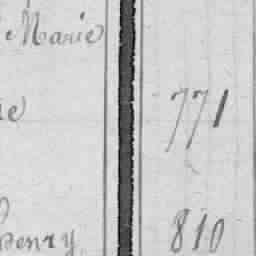 Marie
ie 771
henry 810